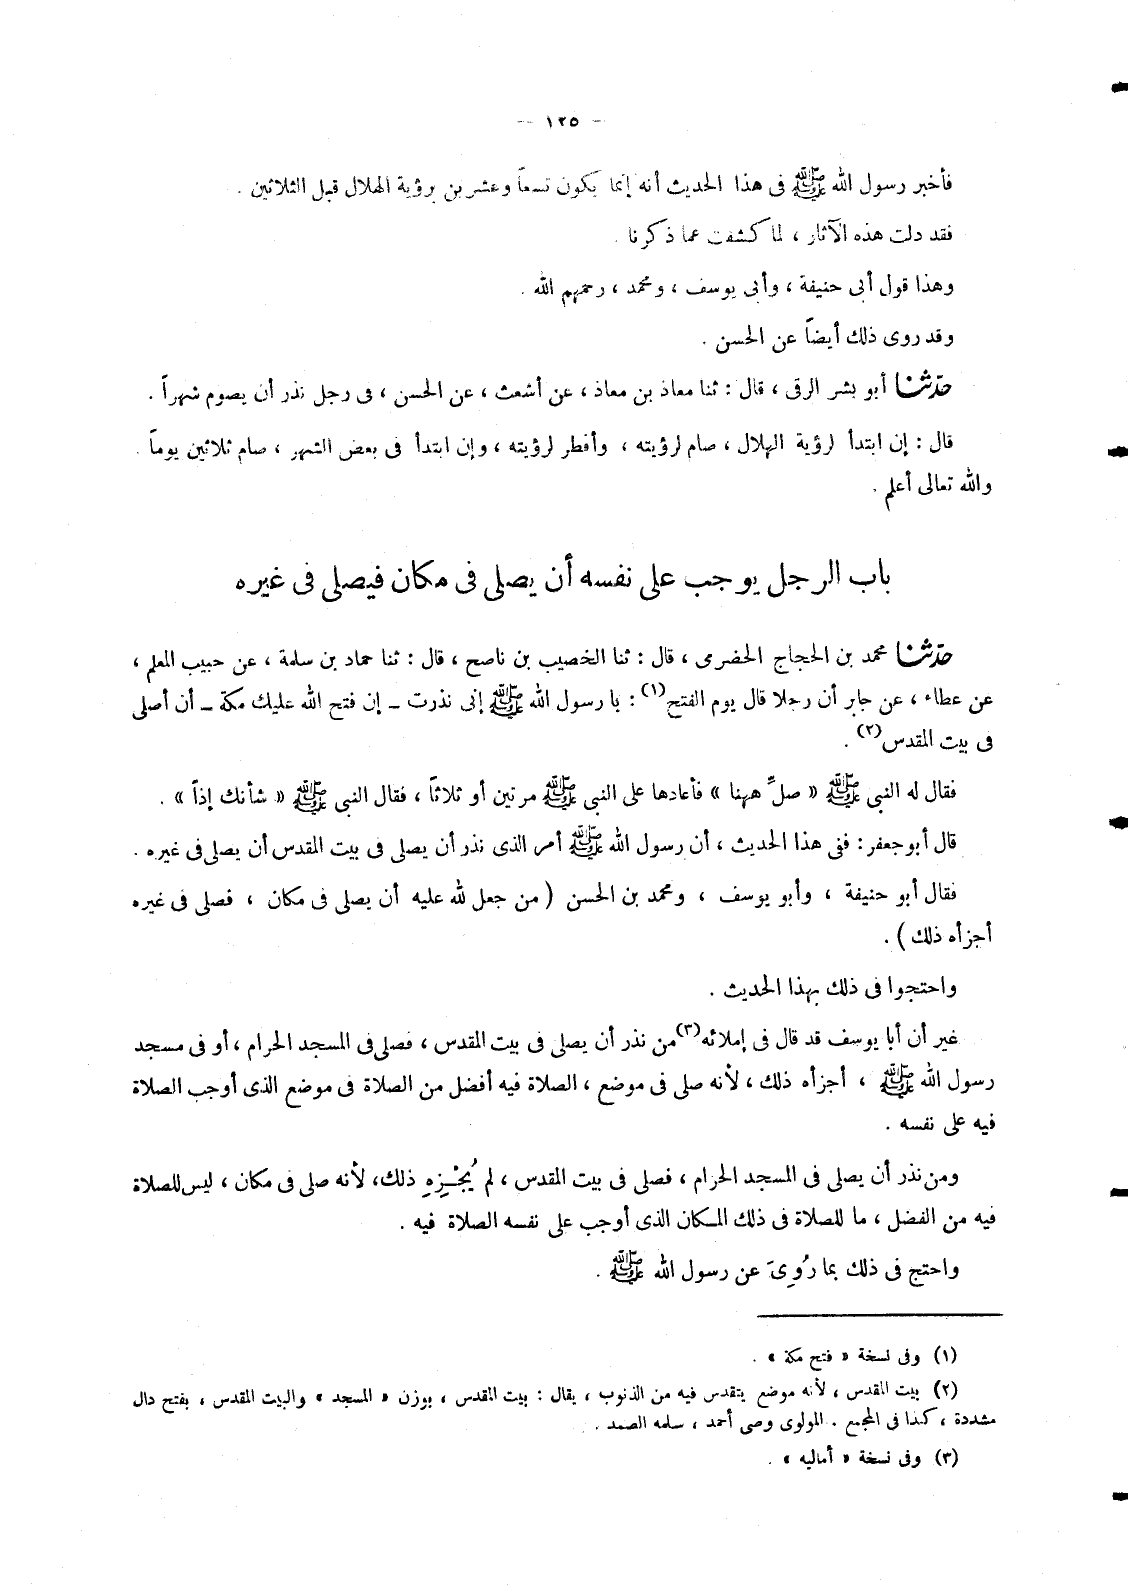 - ١٢٥ -
فأخبر رسول الله ﷺ فى هذا الحديث أنه إنما يكون تسعاً وعشرين برؤية الهلال قبل الثلاثين .
فقد دلت هذه الآثار ، لما كشفت عما ذكرنا .
وهذا قول أبى حنيفة ، وأبى يوسف ، ومحمد ، رحمهم الله .
وقد روى ذلك أيضاً عن الحسن .
حدّثنا أبو بشر الرقى ، قال : ثنا معاذ بن معاذ ، عن أشعث ، عن الحسن ، فى رجل نذر أن يصوم شهراً .
قال : إن ابتدأ لرؤية الهلال ، صام لرؤيته ، وأفطر لرؤيته ، وإن ابتدأ فى بعض الشهر ، صام ثلاثين يوماً .
والله تعالى أعلم .
باب الرجل يوجب على نفسه أن يصلى فى مكان فيصلى فى غيره
حدّثنا محمد بن الحجاج الحضرمى ، قال : ثنا الخصيب بن ناصح ، قال : ثنا حماد بن سلمة ، عن حبيب المعلم ،
عن عطاء ، عن جابر أن رجلا قال يوم الفتح(١) : يا رسول الله ﷺ إنى نذرت ـ إن فتح الله عليك مكة ـ أن أصلى
فى بيت المقدس(٢) .
فقال له النبى ﷺ « صلِّ ههنا » فأعادها على النبى ﷺ مرتين أو ثلاثاً ، فقال النبى ﷺ « شأنك إذاً » .
قال أبو جعفر : ففى هذا الحديث ، أن رسول الله ﷺ أمر الذى نذر أن يصلى فى بيت المقدس أن يصلى فى غيره .
فقال أبو حنيفة ، وأبو يوسف ، ومحمد بن الحسن ( من جعل لله عليه أن يصلى فى مكان ، فصلى فى غيره
أجزأه ذلك ) .
واحتجوا فى ذلك بهذا الحديث .
غير أن أبا يوسف قد قال فى إملائه(٣) من نذر أن يصلى فى بيت المقدس ، فصلى فى المسجد الحرام ، أو فى مسجد
رسول الله ﷺ ، أجزأه ذلك ، لأنه صلى فى موضع ، الصلاة فيه أفضل من الصلاة فى موضع الذى أوجب الصلاة
فيه على نفسه .
ومن نذر أن يصلى فى المسجد الحرام ، فصلى فى بيت المقدس ، لم يُجْزِهِ ذلك، لأنه صلى فى مكان ، ليس للصلاة
فيه من الفضل ، ما للصلاة فى ذلك المكان الذى أوجب على نفسه الصلاة فيه .
واحتج فى ذلك بما رُوِىَ عن رسول الله ﷺ .
(١) وفى نسخة « فتح مكة » .
(٢) بيت المقدس ، لأنه موضع يتقدس فيه من الذنوب ، يقال : بيت المقدس ، بوزن « المسجد » والبيت المقدس ، بفتح دال
مشددة ، كذا فى المجمع . المولوى وصى أحمد ، سلمه الصمد .
(٣) وفى نسخة « أماليه » .